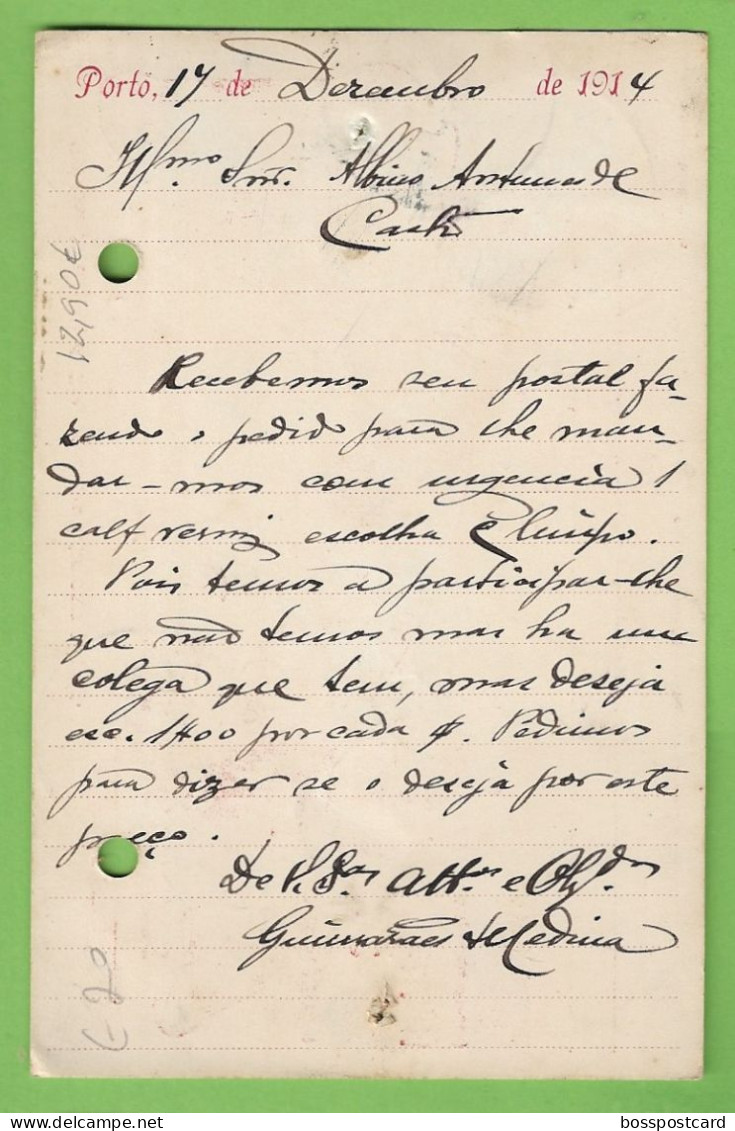 Porto, 17 de Dezembro de 1914
Illmo Snr. Albino Antunes de
Castro
12,90€
Recebemos seu postal fa-
zendo o pedido para lhe man-
dar-mos com urgencia 1
calf verniz escolha e limpo.
Pois temos a participar-lhe
que não temos mas ha um
colega que tem, mas deseja
esc. 1$00 por cada p. Pedimos
para dizer se o deseja por este
preço.
De V. Sas Attos e Obgdos
Guimarães & Medina
bosspostcard